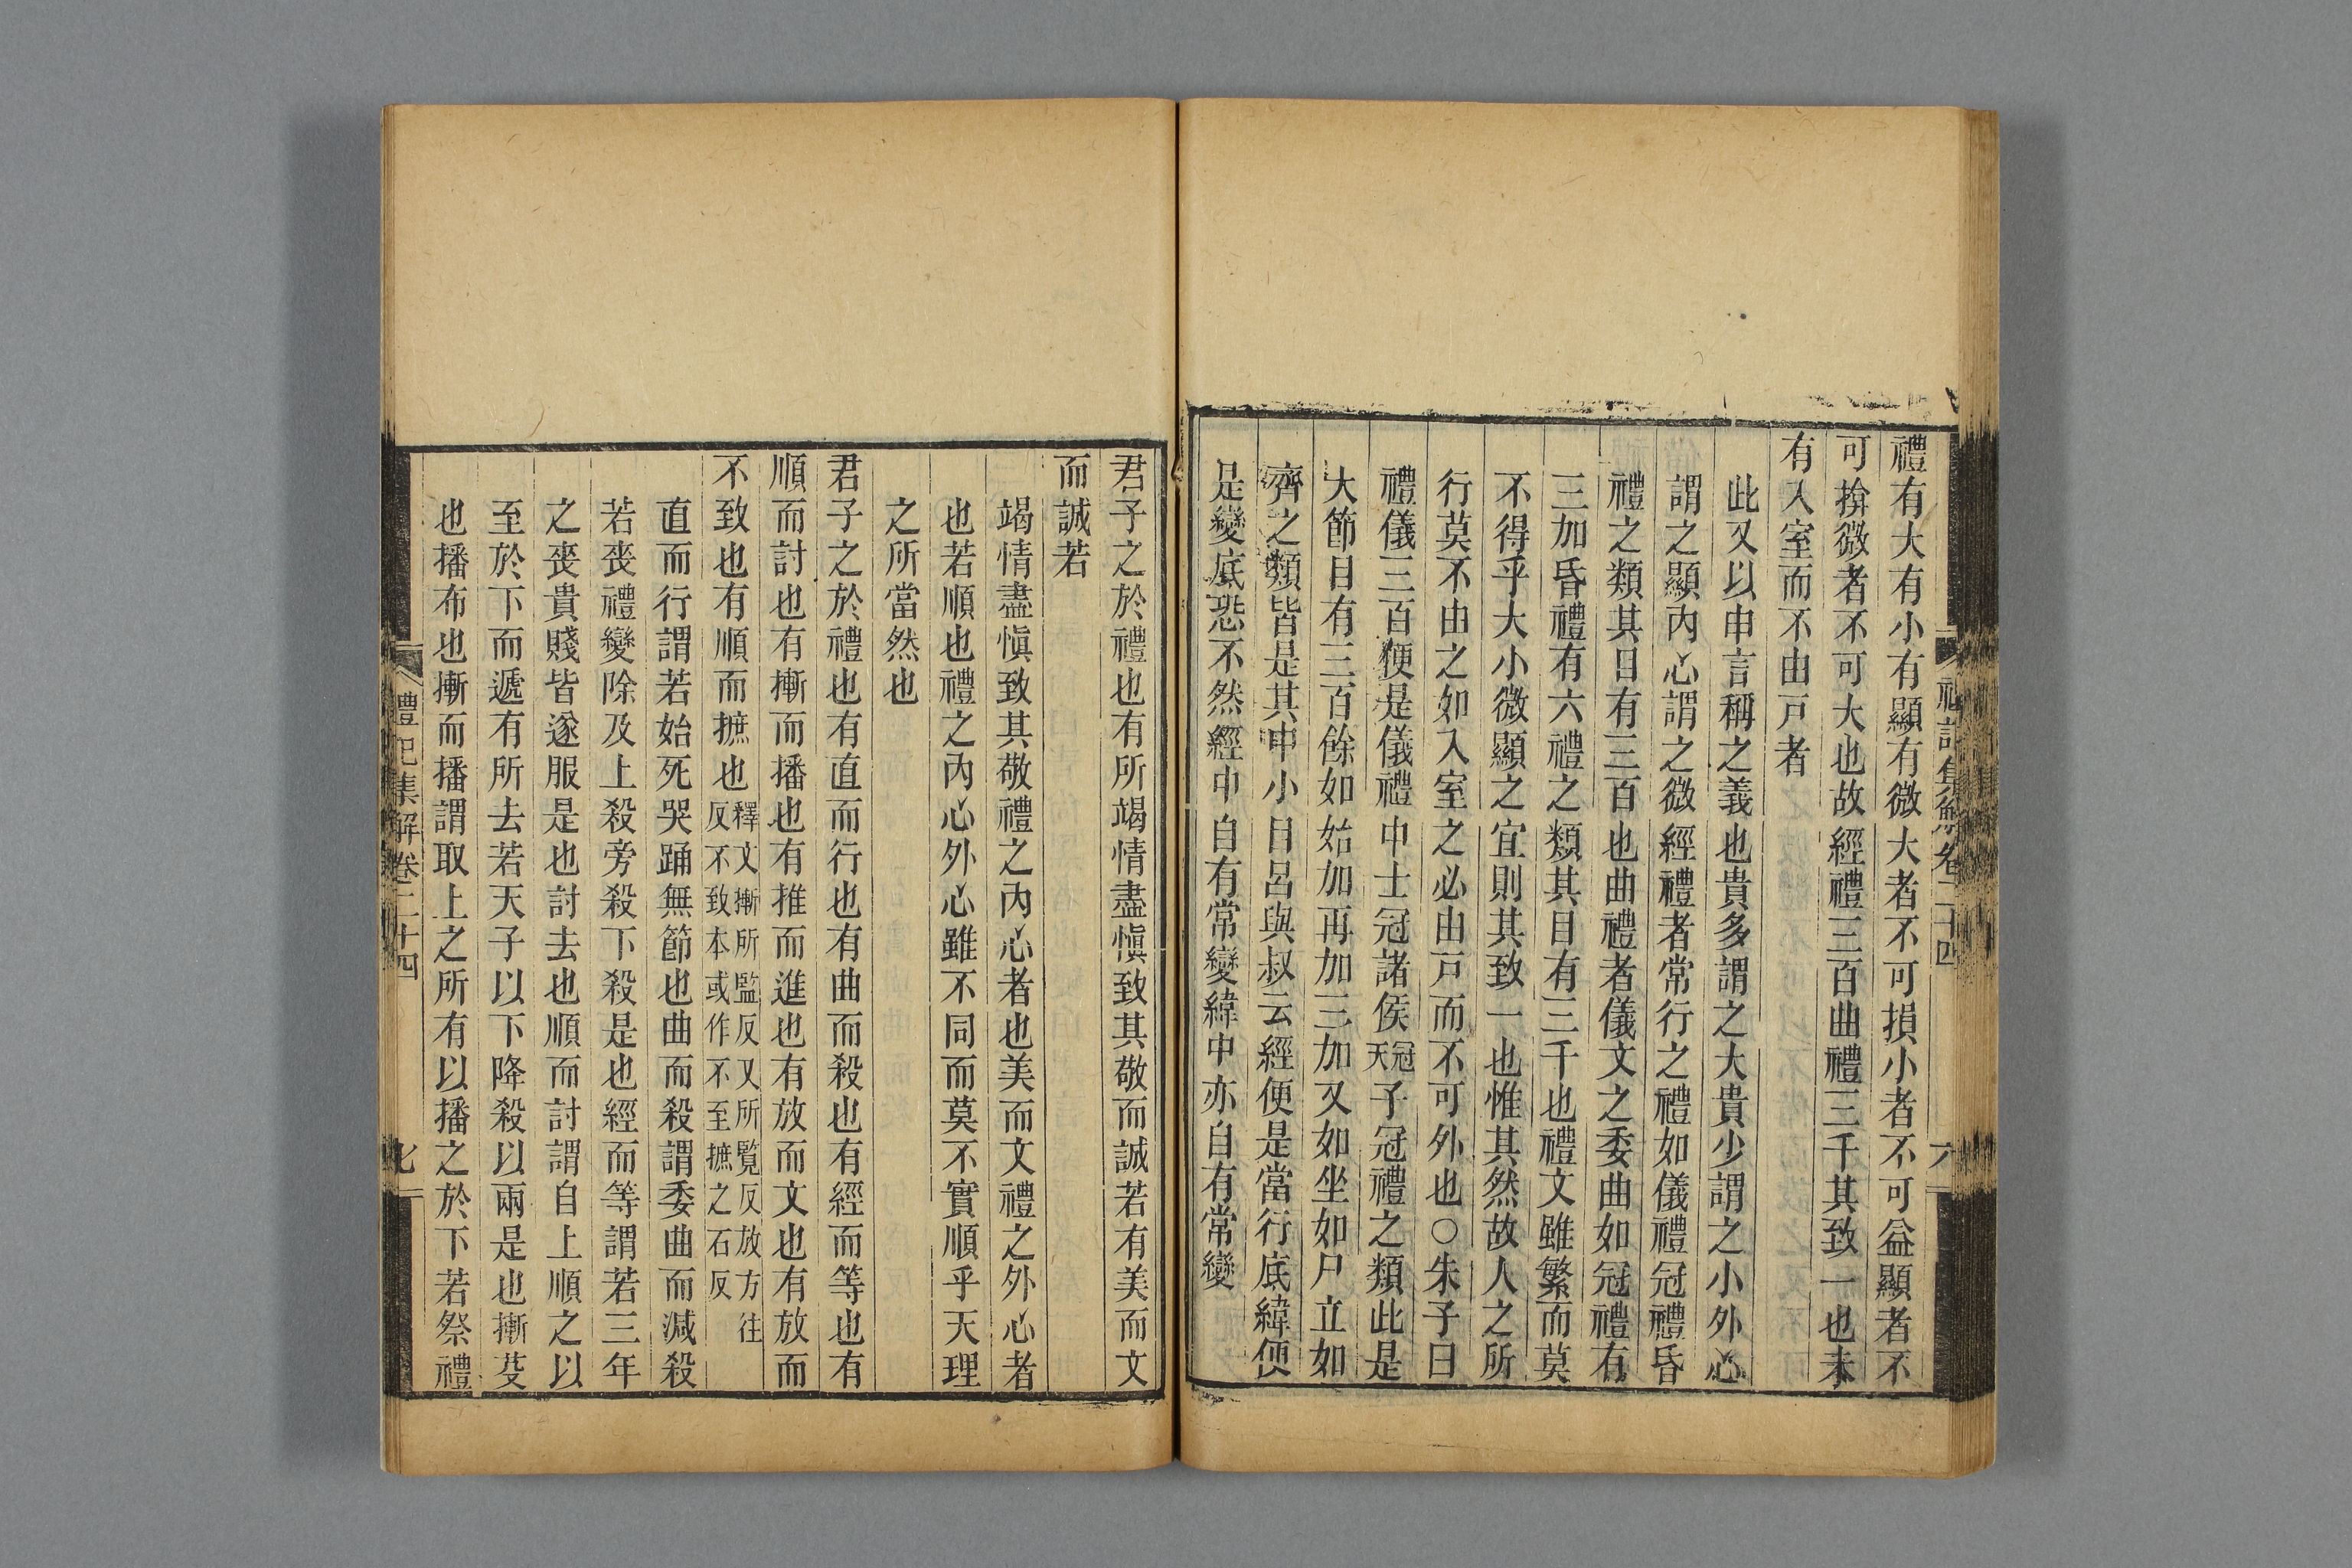 禮有大有小有顯有微大者不可損小者不可益顯者不
可揜微者不可大也故經禮三百曲禮三千其致一也未
有入室而不由戸者
此又以申言稱之義也貴多謂之大貴少謂之小外心
謂之顯內心謂之微經禮者常行之禮如儀禮冠禮昏
禮之類其目有三百也曲禮者儀文之委曲如冠禮有
三加昏禮有六禮之類其目有三千也禮文雖繁而莫
不得乎大小微顯之宜則其致一也惟其然故人之所
行莫不由之如入室之必由戸而不可外也○朱子曰
禮儀三百便是儀禮中士冠諸侯冠天子冠禮之類此是
大節目有三百餘如始加再加三加又如坐如尸立如
齊之類皆是其中小目呂與叔云經便是當行底緯便
是變底恐不然經中自有常變緯中亦自有常變
禮記集解卷二十四
六
君子之於禮也有所竭情盡愼致其敬而誠若有美而文
而誠若
竭情盡愼致其敬禮之內心者也美而文禮之外心者
也若順也禮之內心外心雖不同而莫不實順乎天理
之所當然也
君子之於禮也有直而行也有曲而殺也有經而等也有
順而討也有摲而播也有推而進也有放而文也有放而
不致也有順而摭也釋文摲所監反又所覽反放方往
反不致本或作不至摭之石反
直而行謂若始死哭踊無節也曲而殺謂委曲而減殺
若喪禮變除及上殺旁殺下殺是也經而等謂若三年
之喪貴賤皆遂服是也討去也順而討謂自上順之以
至於下而遞有所去若天子以下降殺以兩是也摲芟
也播布也摲而播謂取上之所有以播之於下若祭禮
禮記集解卷二十四